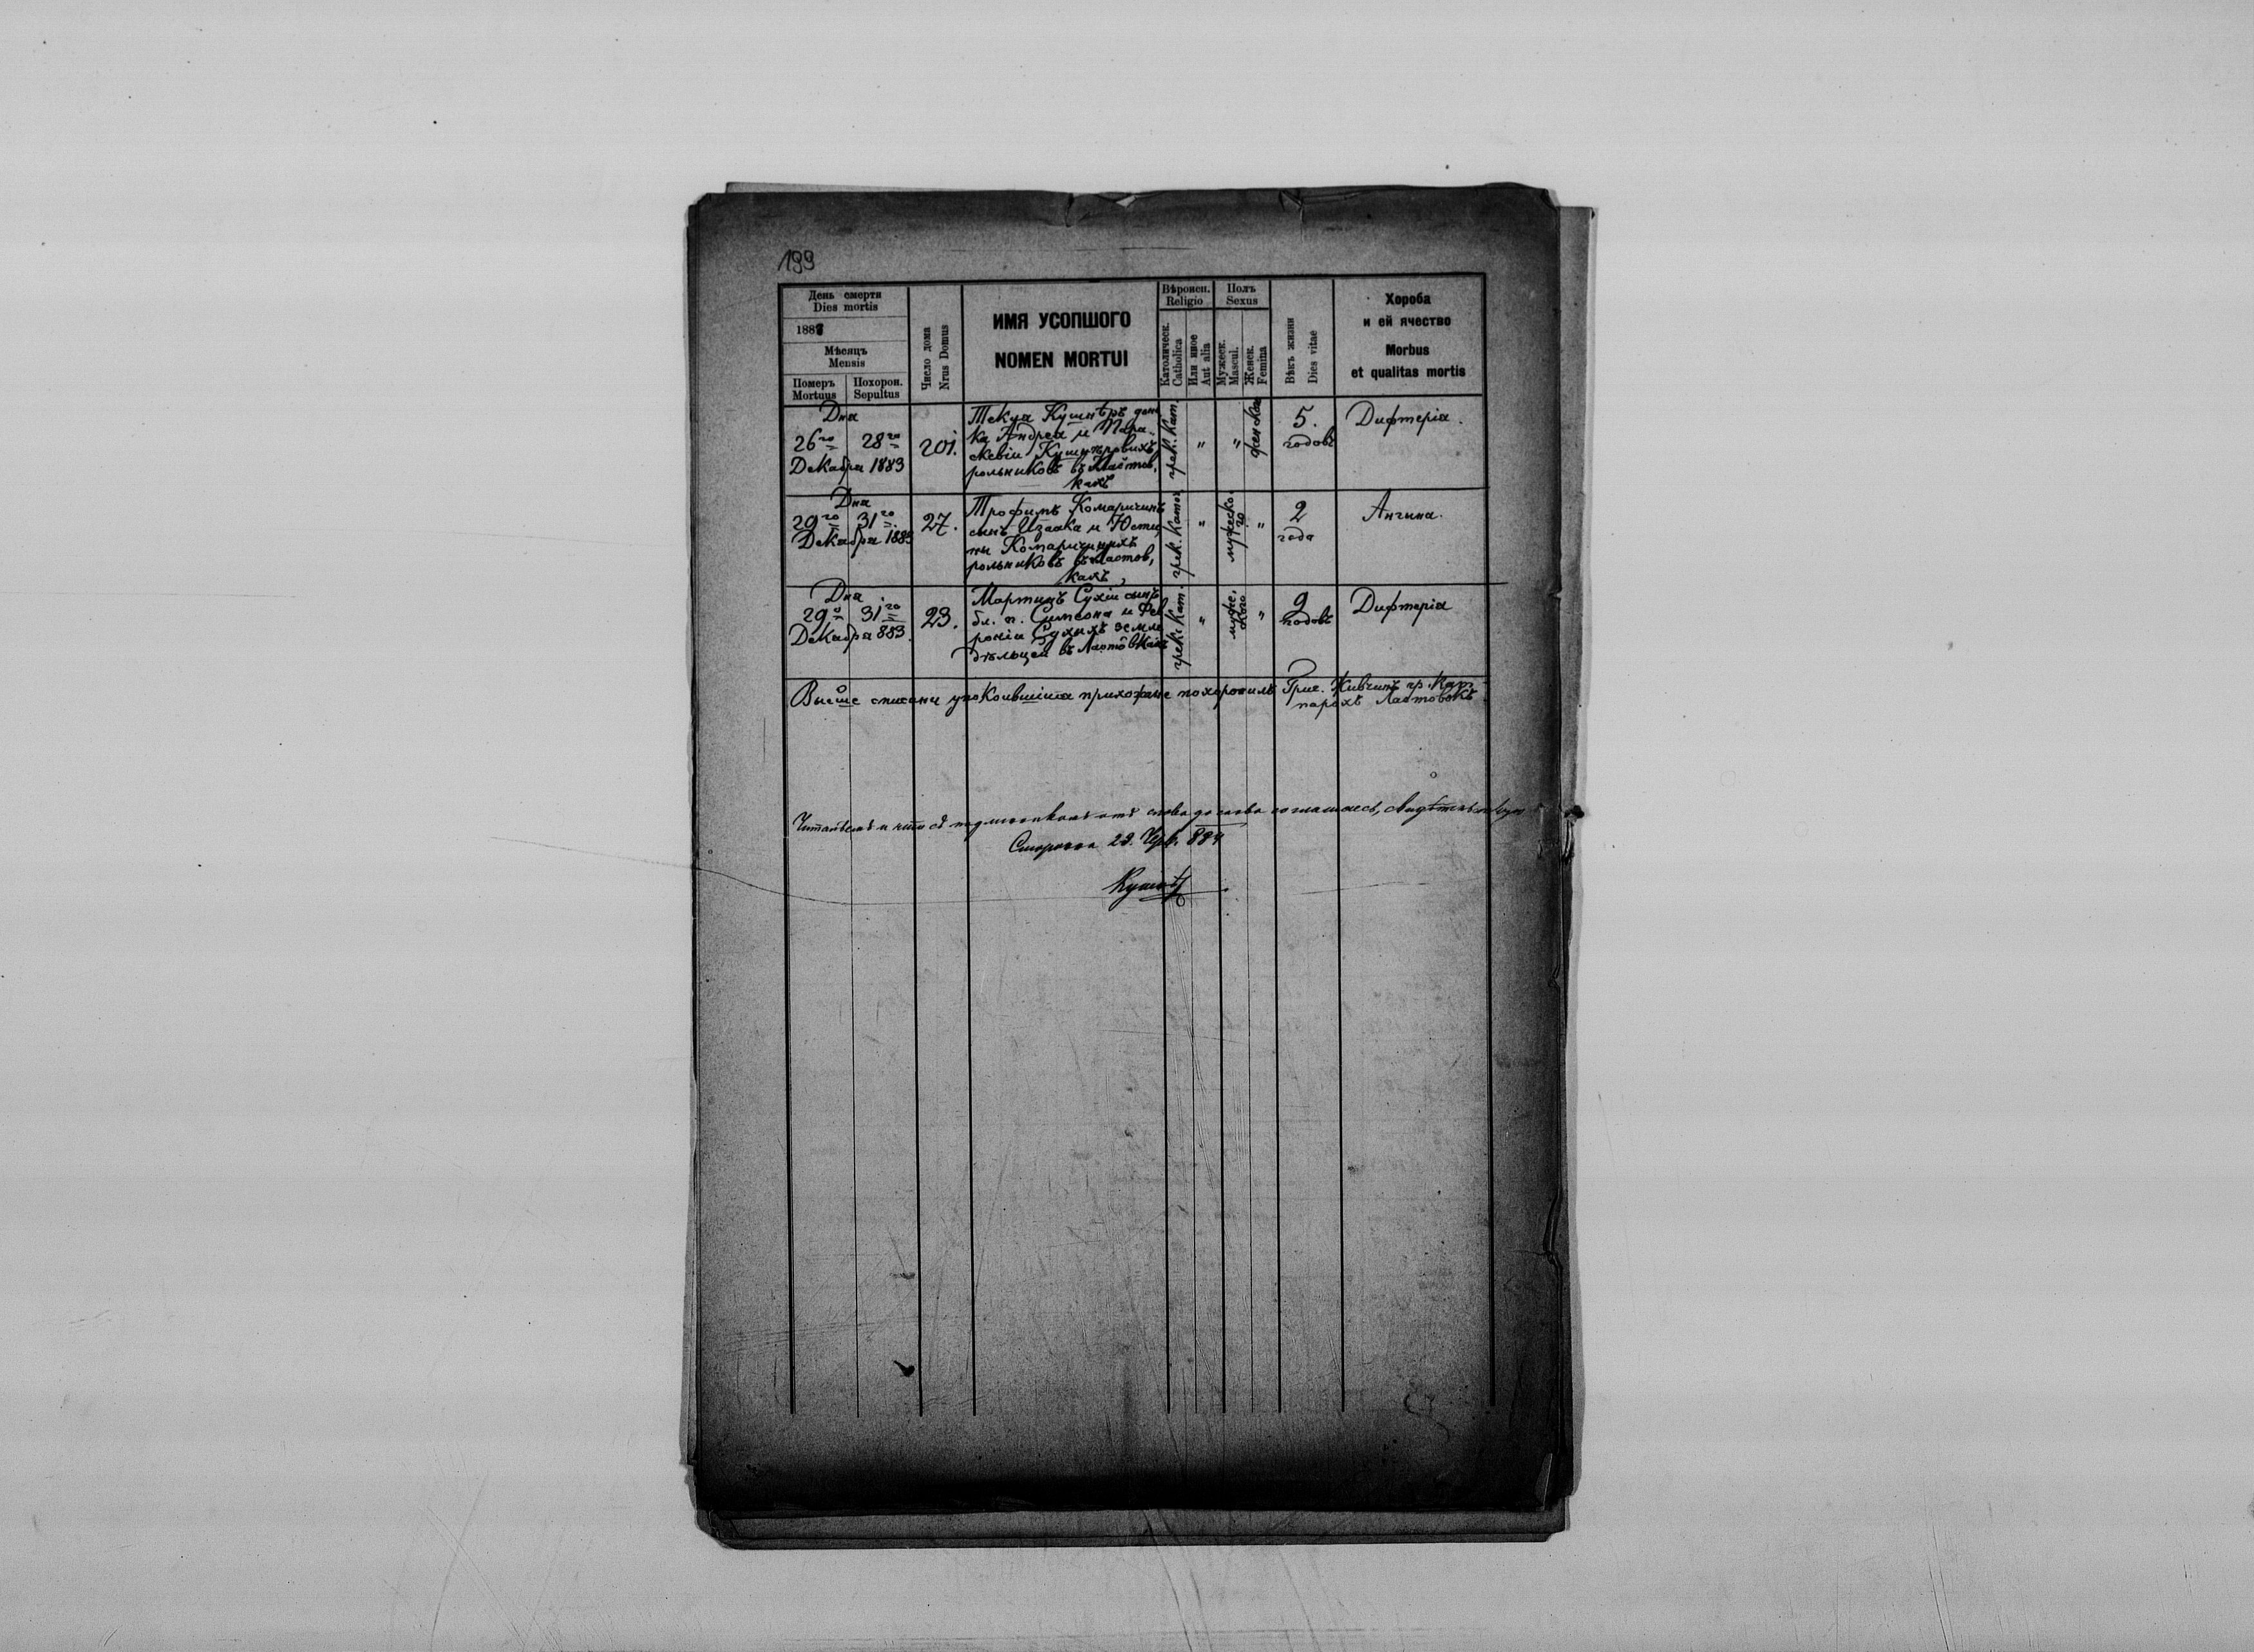 199
День смерти
Dies mortis
1883
Мѣсяцъ
Mensis
Померъ Похорон.
Mortuus Sepultus
Число дома
Nrus Domus
ИМЯ УСОПШОГО
NOMEN MORTUI
Вѣроисп.
Religio
Католическ.
Catholica
Или иное
Aut alia
Полъ
Sexus
Мужеск.
Mascul.
Женск.
Femina
Вѣкъ жизни
Dies vitae
Хороба
и ей ячество
Morbus
et qualitas mortis
Дня
26го 28го
Декабря 1883
201.
Текля Кушнѣръ дон,
ка Андрея и Пара,
скевіи Кушнѣровихъ
рольниковъ въ Ластов,
кахъ
грек. Кат.
"
"
женско
5.
годовъ
Дифтерія.
Дня
29го 31го
Декабря 1883
27.
Трофимъ Комаричинъ
сынъ Изаака и Юсти,
ны Комаричиныхъ
рольниковъ въ Ластов,
кахъ,
грек. Катол.
"
мужеско,
го
"
2
года
Ангина.
Дня
29о 31го
Декабря 883.
23.
Мартинъ Сухій сынъ
бл. п. Симеона и Фев
роніи Сухихъ земле
дѣльцей въ Ластôвкахъ
грек. Кат.
"
муже,
ского
"
2
годовъ
Дифтерія
Высше списани упокоившіися прихожане похоронилъ Григ. Кивчинъ гр. Кат
парохъ Ластовокъ
отъ слова до слова
Сторонна 23. Чрв. 884